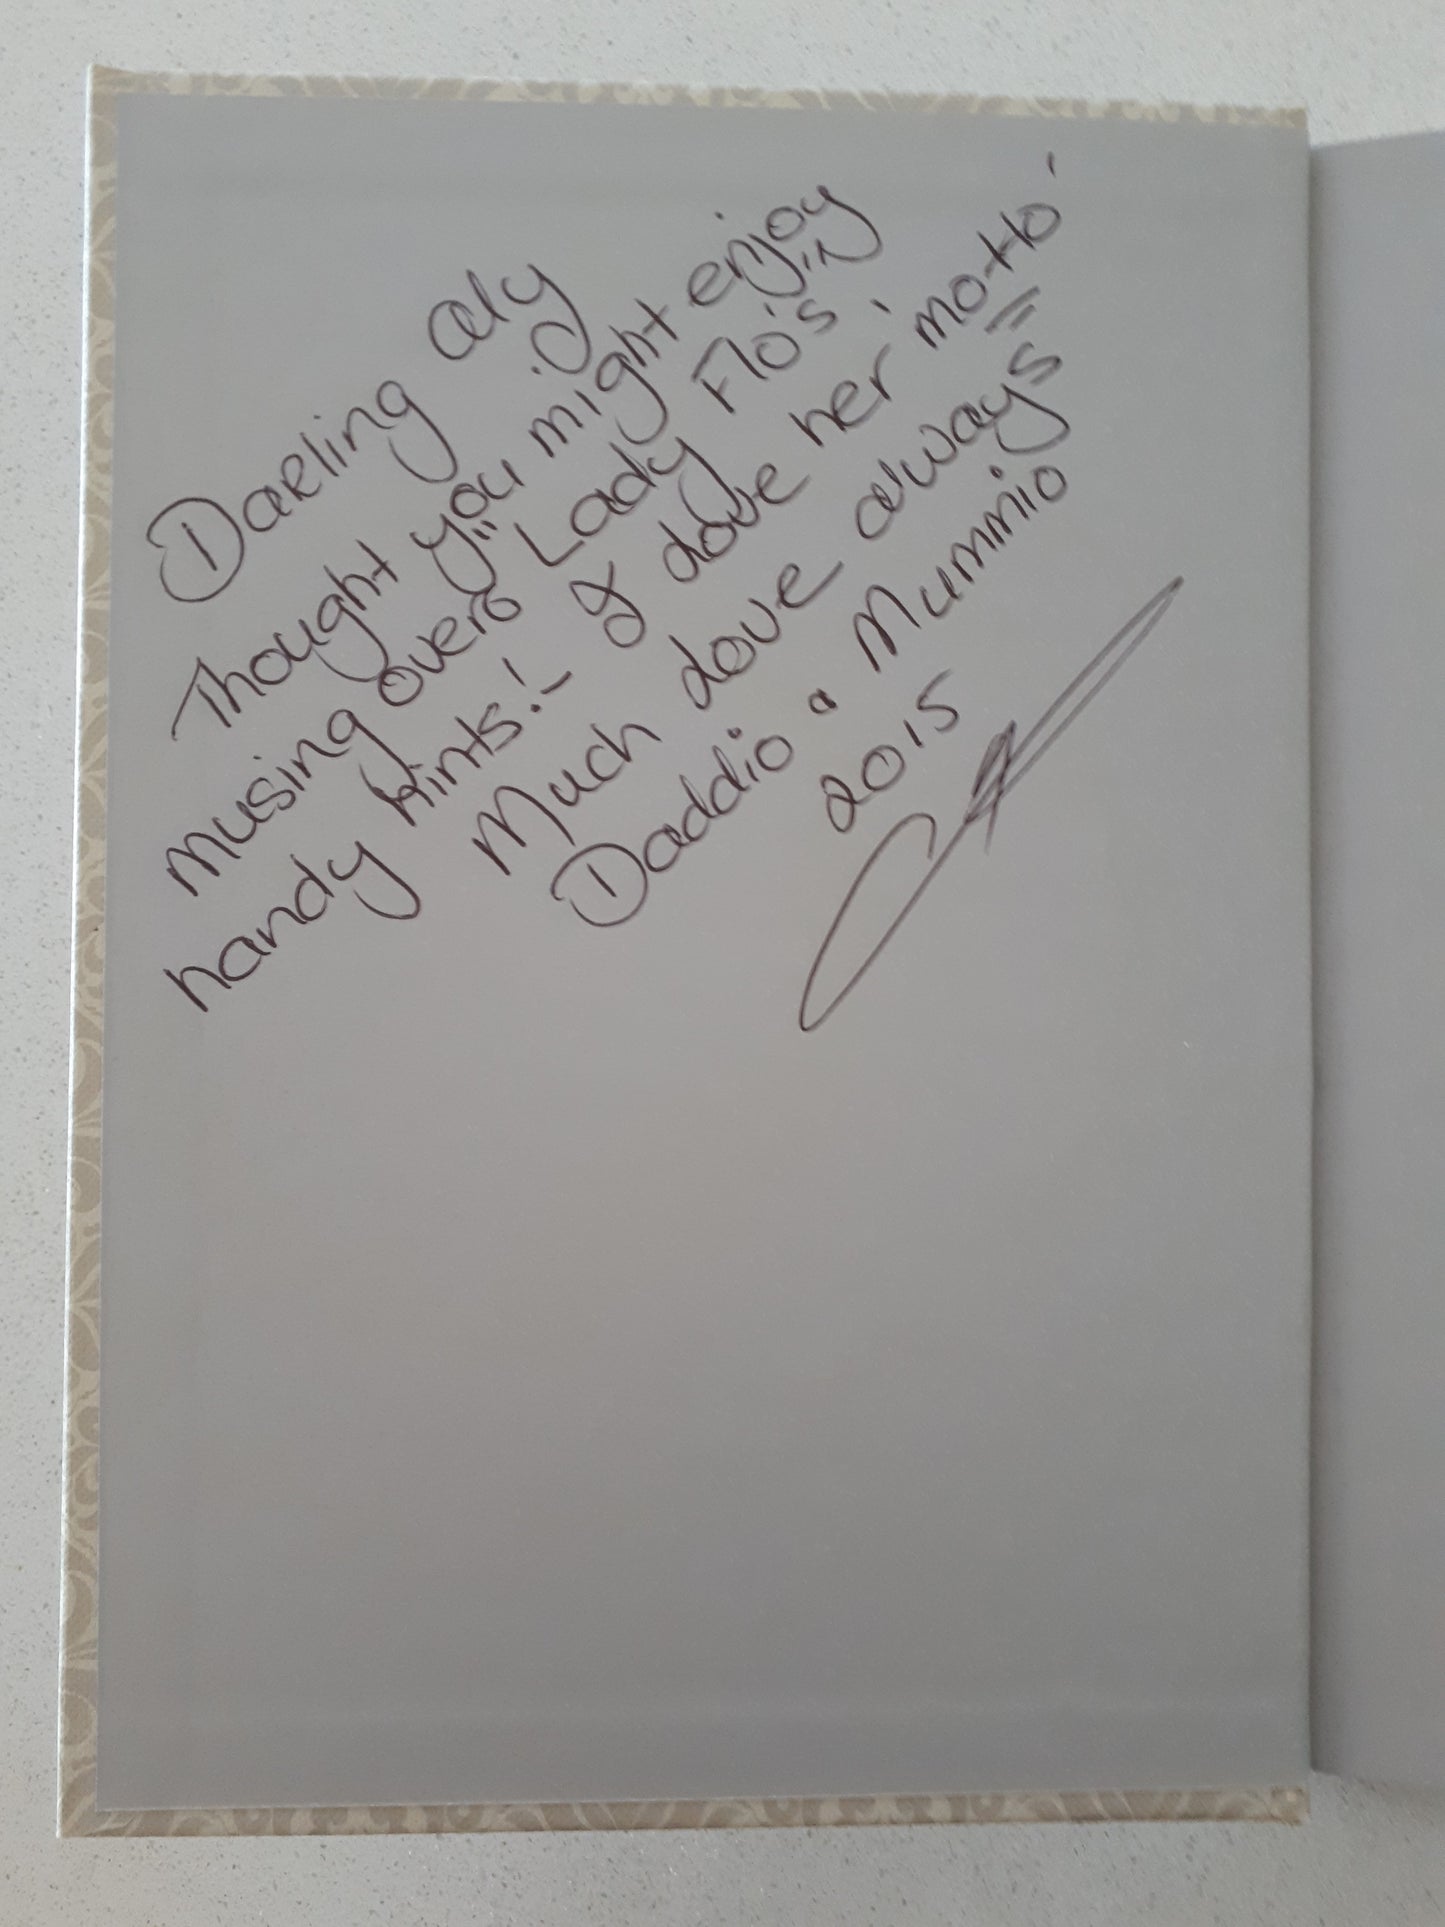 Darling Aly
Thought you might enjoy
musing over "Lady Flo's"
handy hints! - I love her 'motto'
Much love always
Daddio & Mummio
2015